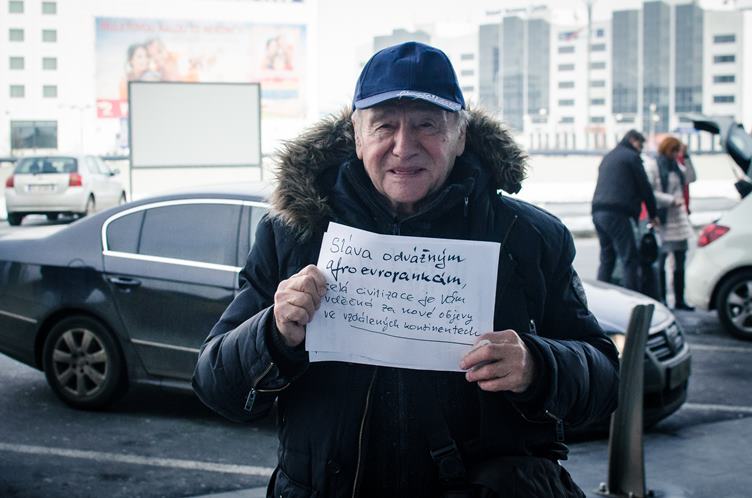 Sláva odvážným
afroevropankám,
celá civilizace je Vám
vděčná za nové objevy
ve vzdálených kontinentech